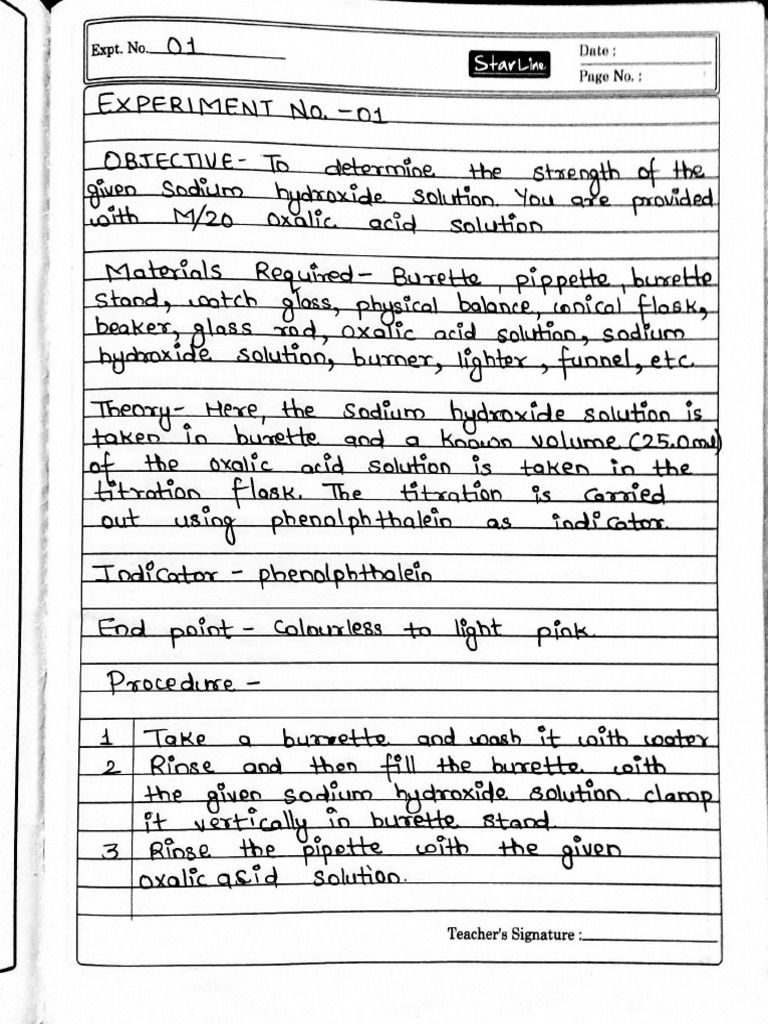 Expt. No. 01
StarLine
Date :
Page No. :
EXPERIMENT No. -01
OBJECTIVE- To determine the strength of the
given Sodium hydroxide solution. You are provided
with M/20 oxalic acid solution
Materials Required- Burette, pippette, burette
stand, watch glass, physical balance, conical flask,
beaker, glass rod, oxalic acid solution, sodium
hydroxide solution, burner, lighter, funnel, etc.
Theory- Here, the sodium hydroxide solution is
taken in burette and a known volume (25.0ml)
of the oxalic acid solution is taken in the
titration flask. The titration is carried
out using phenolphthalein as indicator.
Indicator - phenolphthalein
End point - Colourless to light pink.
Procedure -
1 Take a burrette and wash it with water
2 Rinse and then fill the burette with
the given sodium hydroxide solution. clamp
it vertically in burette stand.
3 Rinse the pipette with the given
oxalic acid solution.
Teacher's Signature :